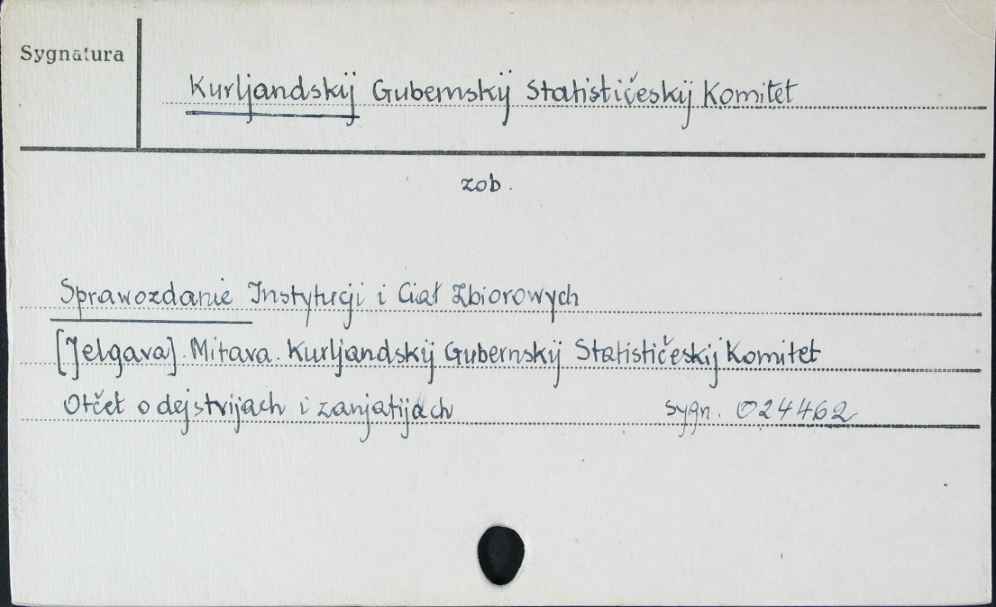 Sygnatura
Kurljandskij Gubernskij Statističeskij Komitet
zob.
Sprawozdanie Instytucji i Ciał Zbiorowych
[Jelgava]. Mitava. Kurljandskij Gubernskij Statističeskij Komitet
Otčet o dejstvijach i zanjatijach sygn. 024462